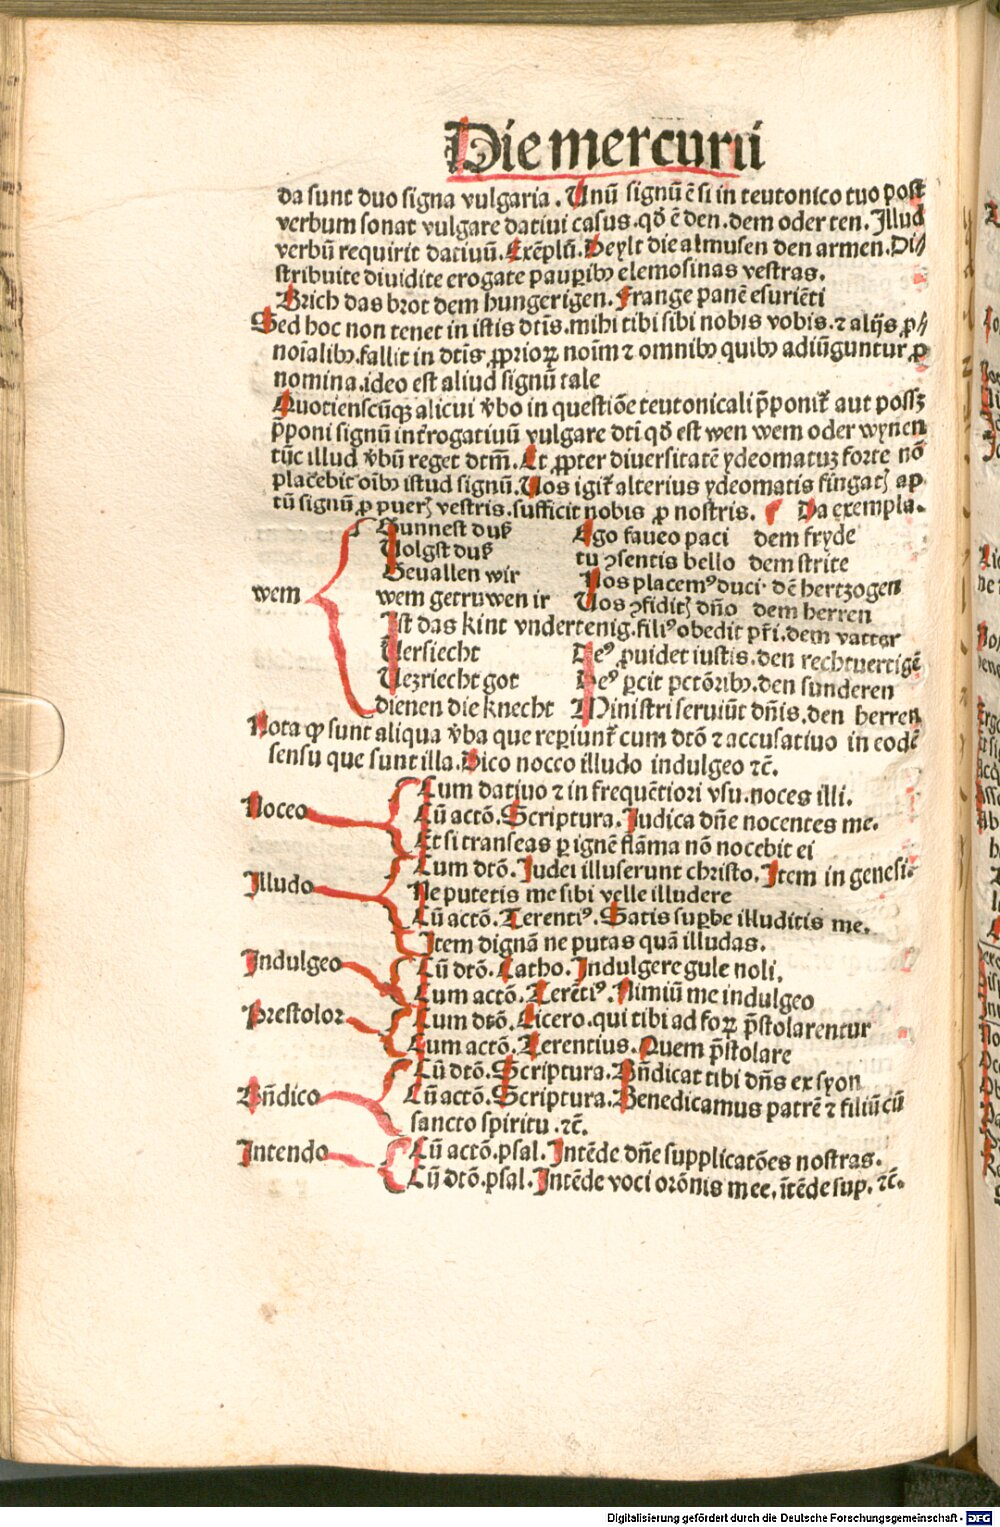 Die mercurii
da sunt duo signa vulgaria. Unū signū ē si in teutonico tuo post
verbum sonat vulgare datiui casus. qđ ē den. dem oder ten. Illud
verbū requirit datiuū. Exēplū. Deylt die almusen den armen. Di//
stribuite diuidite erogate pauꝑibꝰ elemosinas vestras.
Brich das brot dem hungerigen. Frange panē esuriēti
Sed hoc non tenet in istis dc̄is. mihi tibi sibi nobis vobis. ⁊ alijs ꝓ//
noīalibꝰ. fallit in dc̄is ꝓprioꝝ noīm ⁊ omnibꝰ quibꝰ adiūguntur ꝓ
nomina. ideo est aliud signū tale
Quotienscūqꝫ alicui v̄bo in questiōe teutonicali p̄ponit᷑ aut possꝫ
p̄poni signū int̄rogatiuū vulgare dc̄i qđ est wen wem oder wynen
tūc illud v̄bū reget dc̄m. Et ꝓpter diuersitatē ydeomatuꝫ forte nō
placebit oībꝰ istud signū. Uos igit᷑ alterius ydeomatis fingatꝭ ap
tū signū ꝓ puerꝭ vestris. sufficit nobis ꝓ nostris. Da exempla.
wem
Gunnest duß Ego faueo paci dem fryde
Uolgst duß tu ꝯsentis bello dem strite
Geuallen wir Nos placemꝰ duci. dē hertzogen
wem getruwen ir Uos ꝯfiditꝭ dño dem herren
Ist das kint vndertenig. filiꝰ obedit pr̄i. dem vatter
Uersiecht Deꝰ ꝓuidet iustis. den rechtuertigē
Uezriecht got Deꝰ ꝑcit pctōribꝰ. den sunderen
dienen die knecht Ministri seruiūt dñis. den herren
Nota ꝙ sunt aliqua v̄ba que reꝑiunt᷑ cum dc̄o ⁊ accusatiuo in eodē
sensu que sunt illa. Dico nocco illudo indulgeo ⁊c̄.
Noceo
Cum datiuo ⁊ in frequētiori vsu. noces illi.
Cū actō. Scriptura. Iudica dñe nocentes me.
Et si transeas ꝑ ignē flāma nō nocebit ei
Illudo
Cum dc̄o. Iudei illuserunt christo. Item in genesi.
Ne putetis me sibi velle illudere
Cū actō. Terentiꝰ. Satis suꝑbe illuditis me.
Item dignā ne putas quā illudas.
Indulgeo
Cū dc̄o. Catho. Indulgere gule noli.
Cum actō. Terētiꝰ. Nimiū me indulgeo
Prestolor
Cum dc̄o. Cicero. qui tibi ad foꝝ p̄stolarentur
Cum actō. Terentius. Quem p̄stolare
Bñdico
Cū dc̄o. Scriptura. Bñdicat tibi dñs ex syon
Cū actō. Scriptura. Benedicamus patrē ⁊ filiū cū
sancto spiritu. ⁊c̄.
Intendo
Cū actō. psal. Intēde dñe supplicatōes nostras.
Cū dc̄o. psal. Intēde voci orōnis mee. ītēde sup. ⁊c̄.
Digitalisierung gefördert durch die Deutsche Forschungsgemeinschaft - DFG